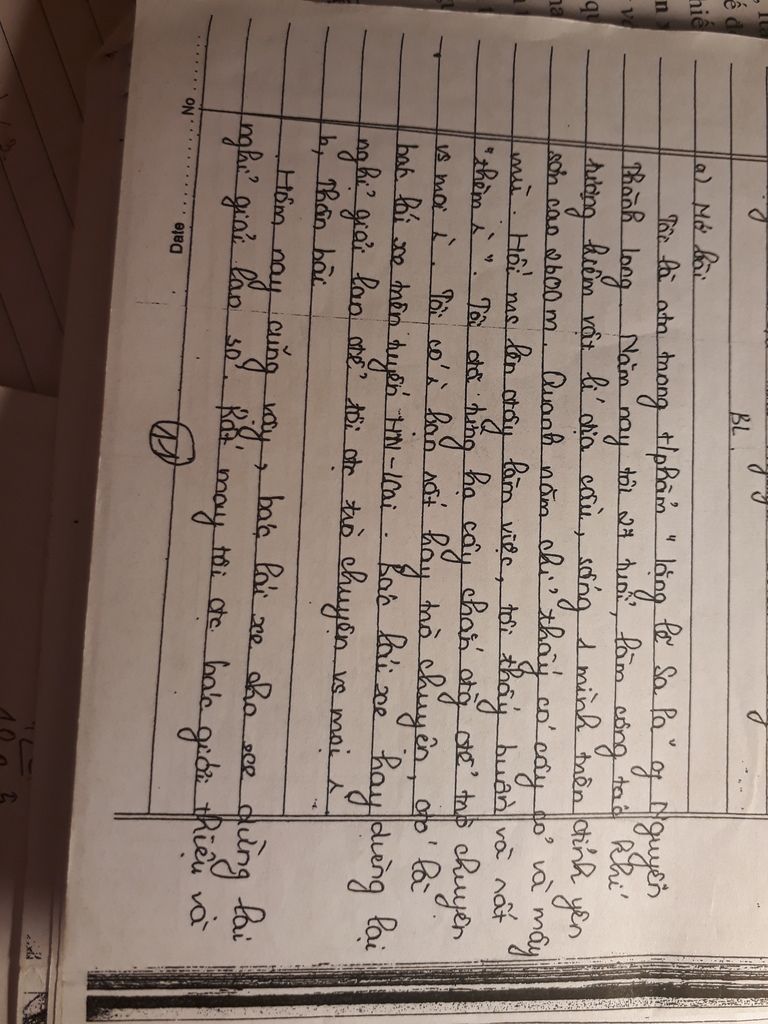 BL.
a) Mở bài
Tôi là atn trong t/phẩm " lặng lẽ Sa Pa" of Nguyễn
Thành Long. Năm nay tôi 27 tuổi, làm công tác khí
tượng kiêm vật lí địa cầu, sống 1 mình trên đỉnh yên
sơn cao 2600m. Quanh năm chỉ thấy có cây cỏ và mây
mù. Hồi ms lên đây làm việc, tôi thấy buồn và rất
"thèm ì". Tôi đã từng hạ cây chắn đg để trò chuyện
vs mọi ì. Tôi có ì bạn rất hay trò chuyện, đó là
bác lái xe trên tuyến HN-LCai. Bác lái xe hay dừng lại
nghỉ giải lao để tôi đc trò chuyện vs mọi ì
b, Thân bài
Hôm nay cũng vậy, bác lái xe cho xe dừng lại
nghỉ giải lao số. Rất may tôi đc bác giới thiệu và
No. Date